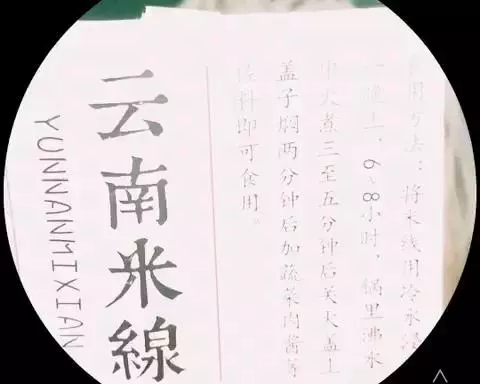 食用方法：将米线用冷水浸
一晚上，6、8小时，锅里沸水
中火煮三至五分钟后关火盖上
盖子焖两分钟后加蔬菜肉酱等
佐料即可食用。
云南米線
YUNNANMIXIAN